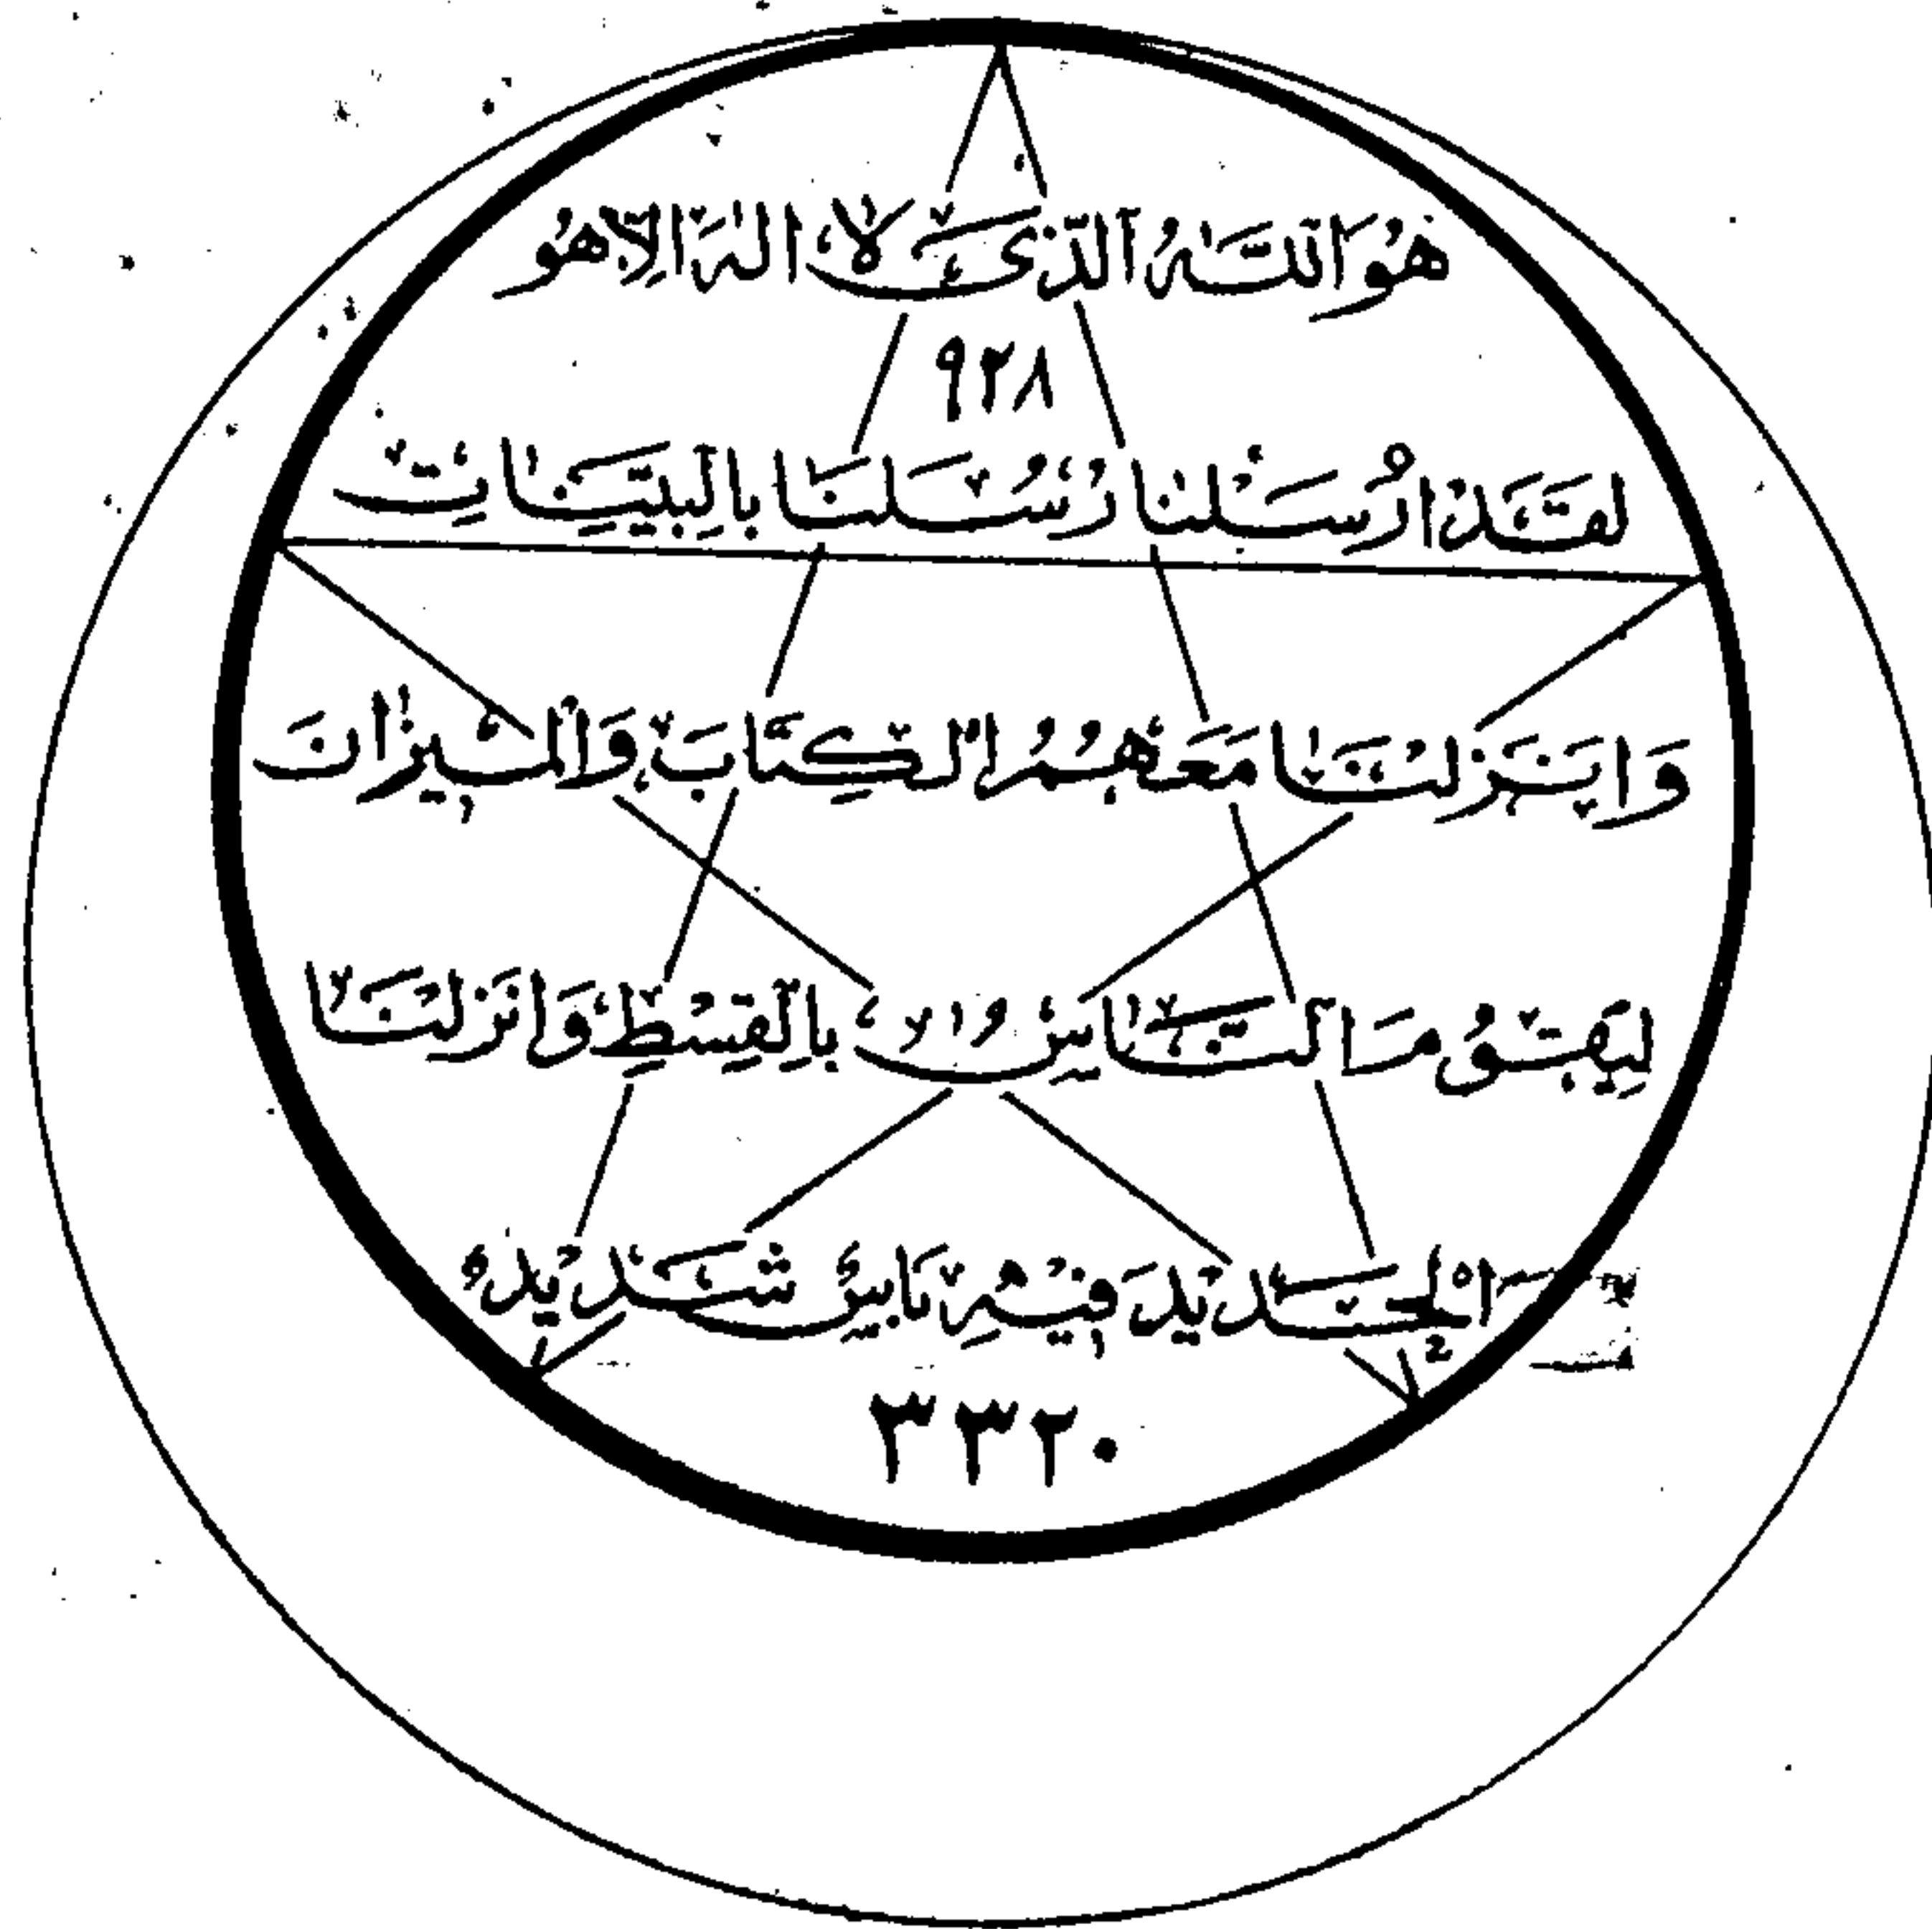 هُوَ اللهُ الَّذِي لَا اِلٰهَ اِلَّا هُوَ
۹۲۸
لَقَدْ اَرْسَلْنَا رُسُلَنَا بِالْبَيِّنَاتِ
وَاَنْزَلْنَا مَعَهُمُ الْكِتَابَ وَالْمِيْزَانَ
لِيَقُوْمَ النَّاسُ بِالْقِسْطِ وَاَنْزَلْنَا
الْحَدِيْدَ فِيْهِ بَاْسٌ شَدِيْدٌ
۳۳۲۰